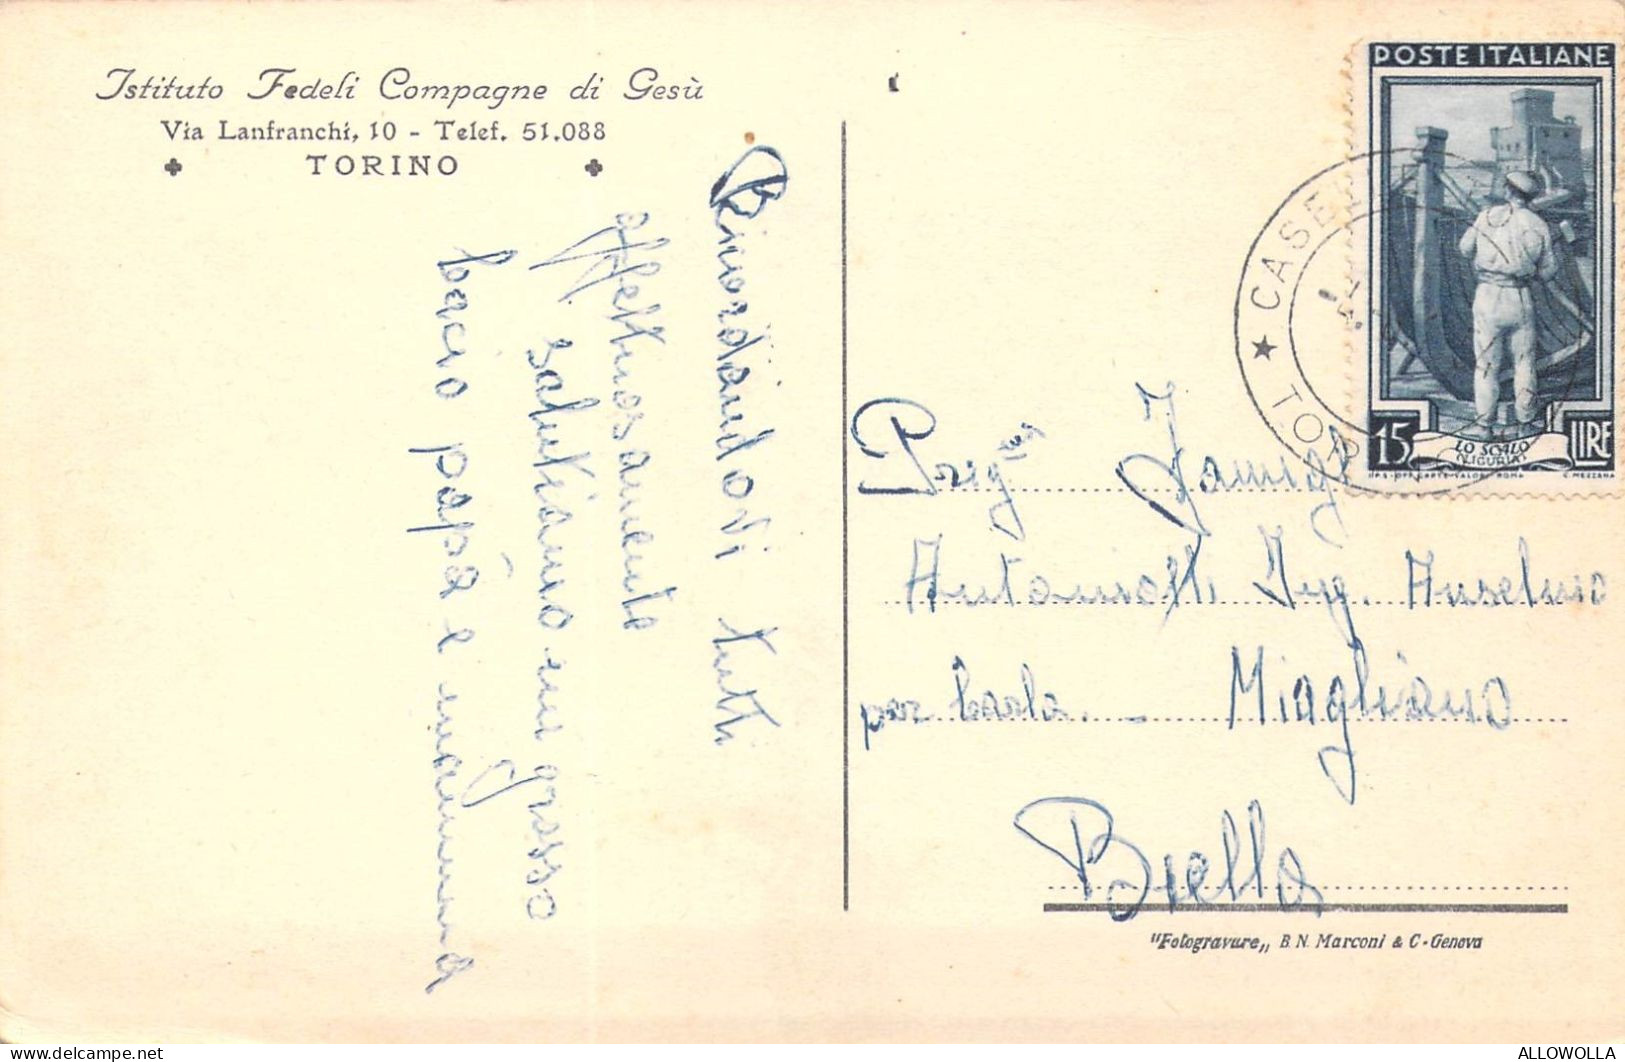 Istituto Fedeli Compagne di Gesù
Via Lanfranchi, 10 - Telef. 51.088
TORINO
Ricordandovi tutti
affettuosamente
salutiamo un grosso
bacio papà e mamma
POSTE ITALIANE
15 LIRE
LO SCALO
(LIGURIA)
I.P.S. OFF. CARTE-VALORI ROMA C. MEZZANA
TOR
Famigl
Ing. Anselmo
per Miagliano
Biella
"Fotogravure„ B. N. Marconi & C - Genova
ALLOWOLLA